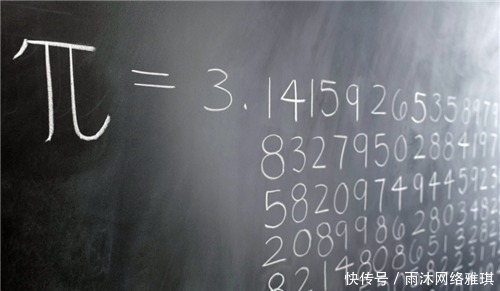 π = 3.1415926535897
83279502884197
58209749445923
2089986280348
821480865132
快传号 / 雨沐网络雅琪